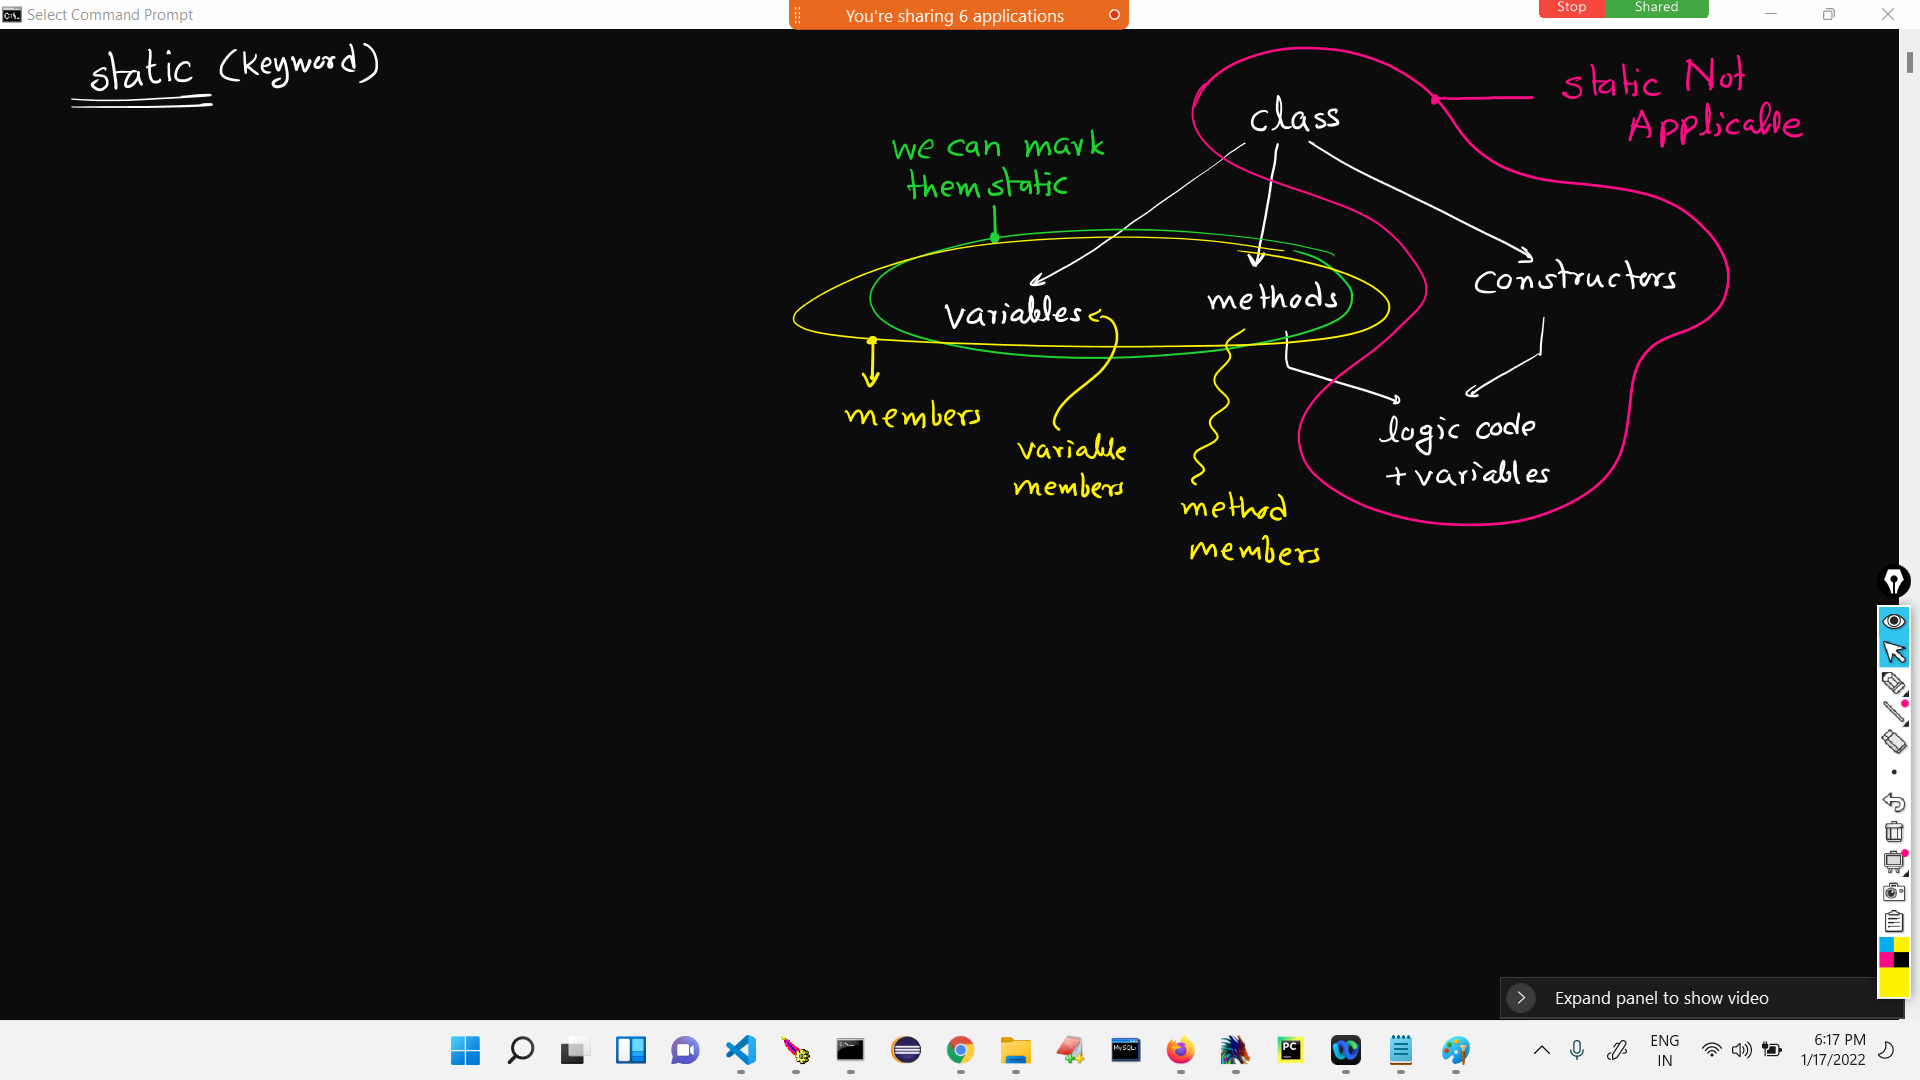 Select Command Prompt
You're sharing 6 applications
Stop Shared
static (keyword)
static Not
Applicable
class
we can mark
them static
variables
methods
constructors
members
variable
members
method
members
logic code
+ variables
Expand panel to show video
MySQL
PC
ENG
IN
6:17 PM
1/17/2022